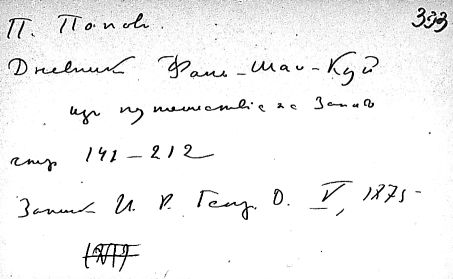 333
П. Попов.
Дневник Фань-Шао-Куй
из путешествiя на Запад
стр 141-212
Записк И. Р. Геогр. О. V, 1875-